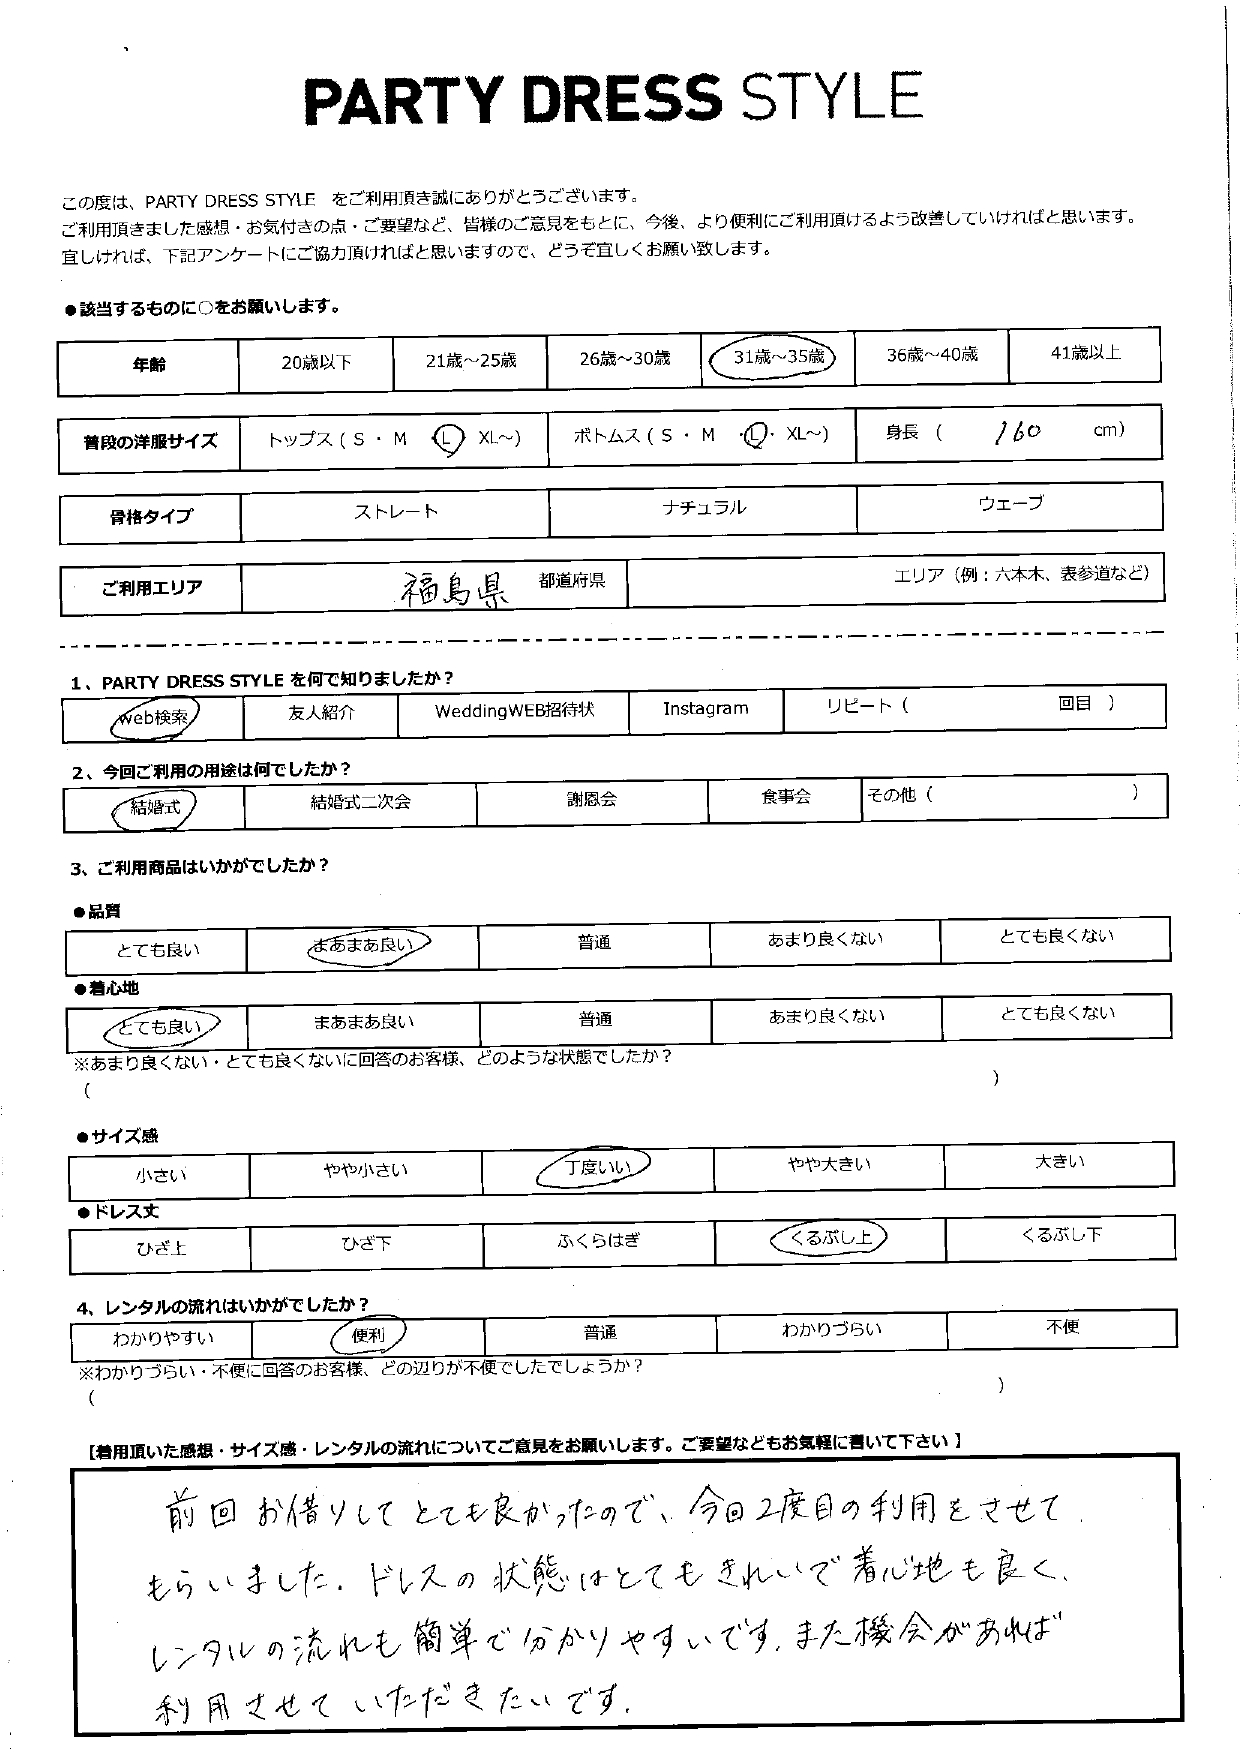 PARTY DRESS STYLE
この度は、PARTY DRESS STYLE をご利用頂き誠にありがとうございます。
ご利用頂きました感想・お気付きの点・ご要望など、皆様のご意見をもとに、今後、より便利にご利用頂けるよう改善していければと思います。
宜しければ、下記アンケートにご協力頂ければと思いますので、どうぞ宜しくお願い致します。
●該当するものに○をお願いします。
年齢 20歳以下 21歳～25歳 26歳～30歳 31歳～35歳 36歳～40歳 41歳以上
普段の洋服サイズ トップス ( S ・ M ・ L ・ XL～) ボトムス ( S ・ M ・ L ・ XL～) 身長 ( 160 cm)
骨格タイプ ストレート ナチュラル ウェーブ
ご利用エリア 福島県 都道府県 エリア（例：六本木、表参道など）
1、PARTY DRESS STYLE を何で知りましたか？
web検索 友人紹介 WeddingWEB招待状 Instagram リピート（ 回目 ）
2、今回ご利用の用途は何でしたか？
結婚式 結婚式二次会 謝恩会 食事会 その他（ ）
3、ご利用商品はいかがでしたか？
●品質
とても良い まあまあ良い 普通 あまり良くない とても良くない
●着心地
とても良い まあまあ良い 普通 あまり良くない とても良くない
※あまり良くない・とても良くないに回答のお客様、どのような状態でしたか？
（ ）
●サイズ感
小さい やや小さい 丁度いい やや大きい 大きい
●ドレス丈
ひざ上 ひざ下 ふくらはぎ くるぶし上 くるぶし下
4、レンタルの流れはいかがでしたか？
わかりやすい 便利 普通 わかりづらい 不便
※わかりづらい・不便に回答のお客様、どの辺りが不便でしたでしょうか？
（ ）
【着用頂いた感想・サイズ感・レンタルの流れについてご意見をお願いします。ご要望などもお気軽に書いて下さい 】
前回お借りしてとても良かったので、今回2度目の利用をさせて
もらいました。ドレスの状態はとてもきれいで着心地も良く、
レンタルの流れも簡単で分かりやすいです。また機会があれば
利用させていただきたいです。